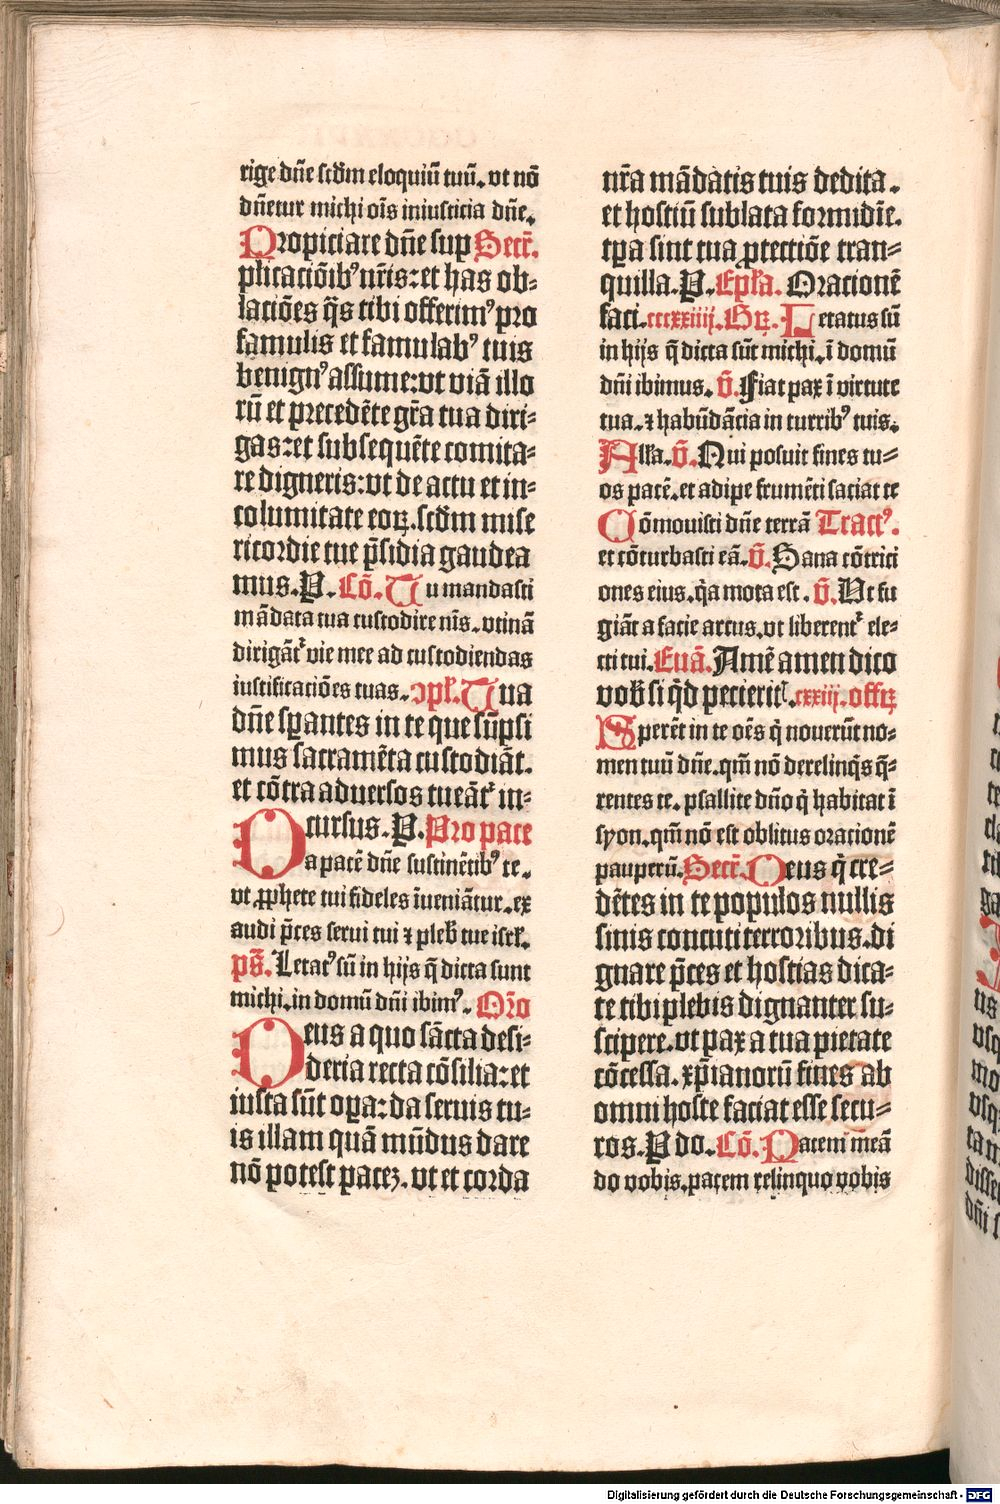 rige dn̄e scd̄m eloquiū tuū. vt nō
dn̄etur michi oīs iniusticia dn̄e.
Propiciare dn̄e sup Secr̄.
plicaciōibꝰ nr̄is: et has ob⸗
laciōes q̄s tibi offerimꝰ pro
famulis et famulabꝰ tuis
benignꝰ assume: vt viā illo
rū et precedēte gr̄a tua diri⸗
gas: et subsequēte comita⸗
re digneris: vt de actu et in⸗
columitate eoꝝ. scd̄m mise
ricordie tue p̄sidia gaudea
mus. P. Cō. Tu mandasti
mādata tua custodire nīs. vtinā
dirigāt᷑ vie mee ad custodiendas
iustificaciōes tuas. ꝯpl̄. Tua
dn̄e sꝑantes in te que sūpsi
mus sacramēta custodiāt.
et cōtra aduersos tueāt᷑ in⸗
cursus. P. Pro pace
Da pacē dn̄e sustinētibꝰ te.
vt ꝓphete tui fideles īueniātur. ex
audi p̄ces serui tui ⁊ pleb̄ tue isrl̄.
ps̄. Letatꝰ sū in hijs q̄ dicta sunt
michi. in domū dn̄i ibimꝰ. Or̄o
Deus a quo sācta desi⸗
deria recta cōsilia: et
iusta sūt oꝑa: da seruis tu⸗
is illam quā mūdus dare
nō potest pacez. vt et corda
nr̄a mādatis tuis dedita.
et hostiū sublata formidīe.
tꝑa sint tua ꝓtectiōe tran⸗
quilla. P. Epl̄a. Oracionē
faci. cccxxiiij. Gꝝ. Letatus sū
in hijs q̄ dicta sūt michi. ī domū
dn̄i ibimus. v̄. Fiat pax ī virtute
tua. ⁊ habūdācia in turribꝰ tuis.
All̄a. v̄. Qui posuit fines tu⸗
os pacē. et adipe frumēti saciat te
Cōmouisti dn̄e terrā Tractꝰ.
et cōturbasti eā. v̄. Sana cōtrici
ones eius. q̄a mota est. v̄. Vt fu
giāt a facie arcus. vt liberent᷑ ele⸗
cti tui. Euā. Amē amen dico
vob̄ si q̄d pecieritꝭ. cxxiij. offꝝ
Sperēt in te oēs q̄ nouerūt no⸗
men tuū dn̄e. qm̄ nō derelinq̄s q̄⸗
rentes te. psallite dn̄o q̄ habitat ī
syon. qm̄ nō est oblitus oracionē
pauperū. Secr̄. Deus q̄ cre⸗
dētes in te populos nullis
sinis concuti terroribus. di
gnare p̄ces et hostias dica⸗
te tibi plebis dignanter su⸗
scipere. vt pax a tua pietate
cōcessa. xp̄ianorū fines ab
omni hoste faciat esse secu⸗
ros. P do. Cō. Pacem meā
do vobis. pacem relinquo vobis
Digitalisierung gefördert durch die Deutsche Forschungsgemeinschaft - DFG